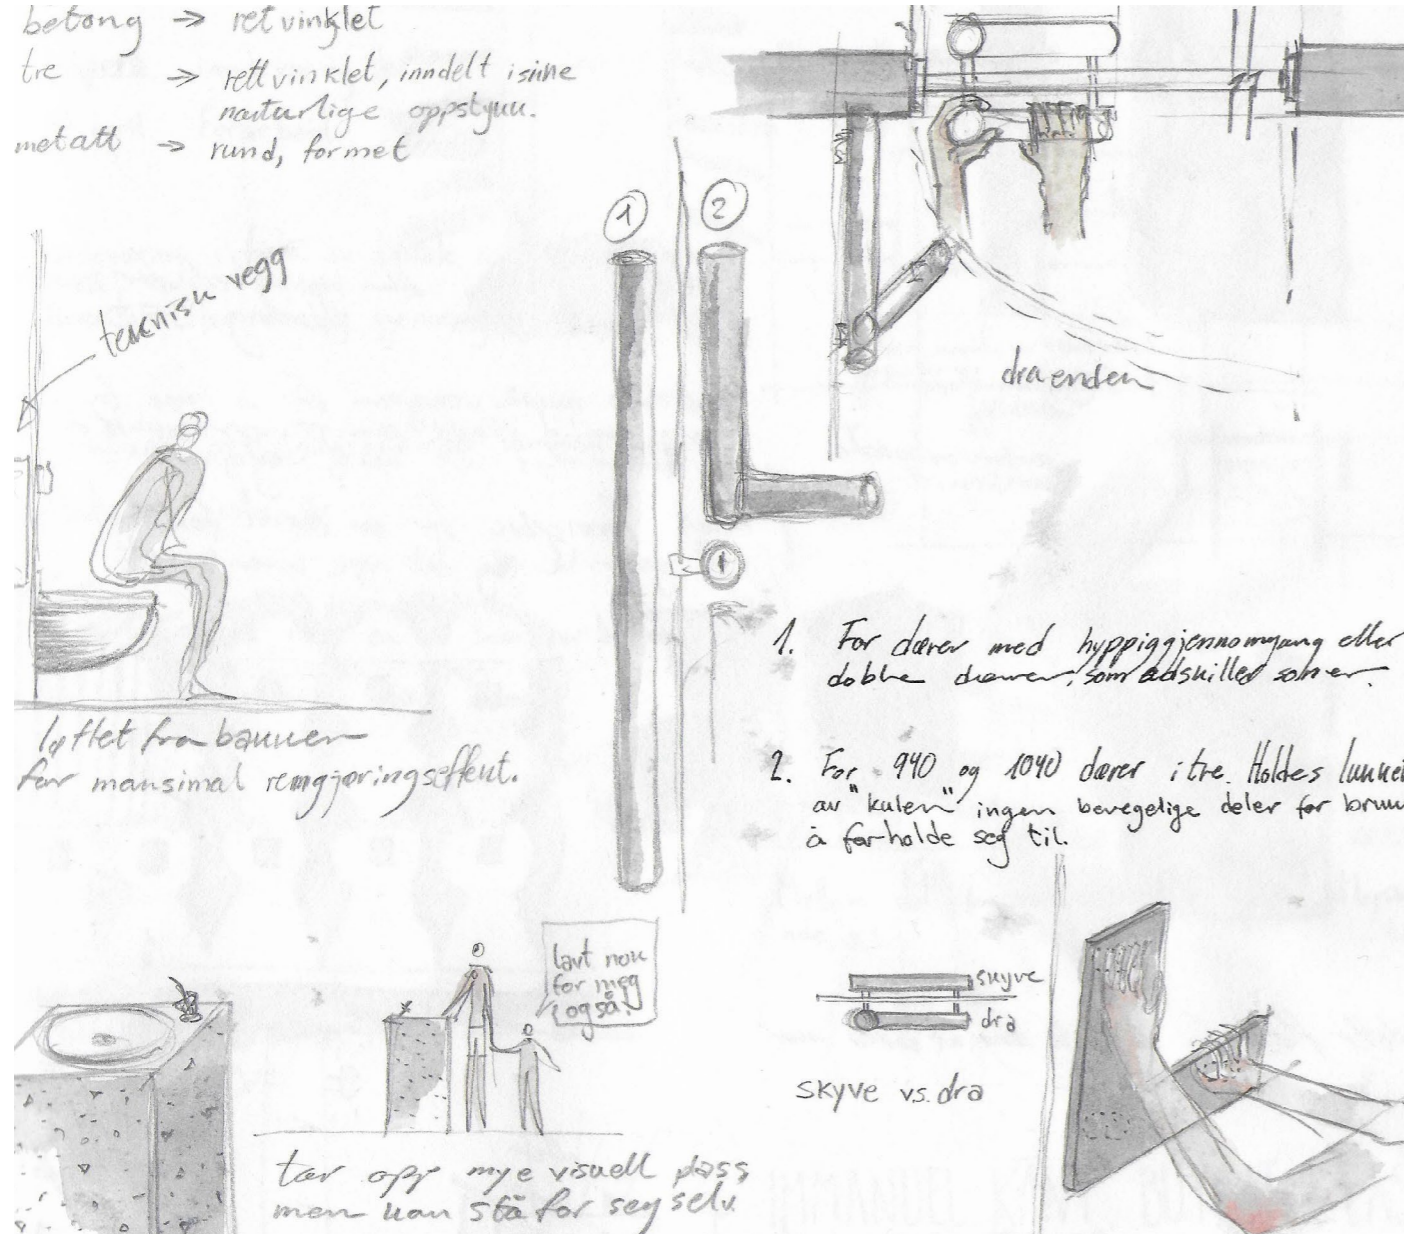 betong → retvinklet
tre → rettvinklet, inndelt i sine
naturlige oppstynn.
metall → rund, formet
teknisk vegg
1
2
dra enden
løftet fra bakken
for maksimal rengjøringseffekt.
1. For dører med hyppig gjennomgang eller
doble dører, som adskiller soner.
2. For 940 og 1040 dører i tre. Holdes lukket
av "kulen" ingen bevegelige deler for
å forholde seg til.
lavt nok
for meg
også!
skyve
dra
skyve vs. dra
tar opp mye visuell plass
men kan stå for seg selv